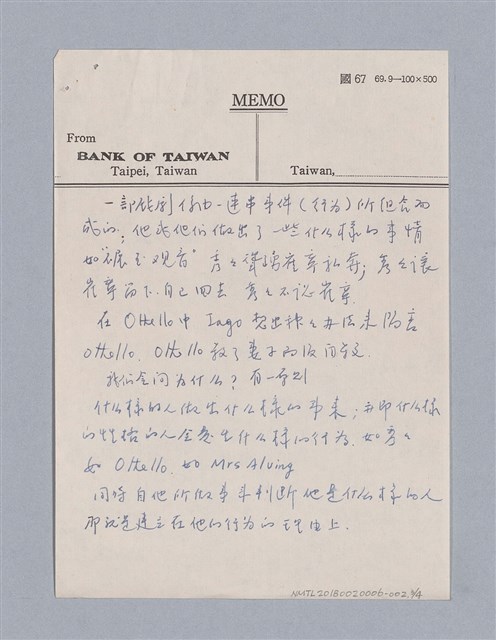 國 67 69.9—100×500
MEMO
From
BANK OF TAIWAN
Taipei, Taiwan
Taiwan,
一部戏剧係由一連串事件(行为)所组合而
成的;他或他们做出了一些什么樣的事情
如"碾玉观音"秀々
崔寧 自己回去 秀々不認崔寧.
在 Othello 中 Iago 想出种々办法来陷害
Othello. Othello 殺了妻子而後自
我们会问为什么?有一原則
什么樣的人做出什么樣的事来;亦即什么樣
的性格的人会產生什么樣的行为. 如秀々
如 Othello. 如 Mrs Alving
同時自他所做事来判断他是什么樣的人
那就是建立在他们行为的理由上.
NMTL20180020006-002.4/4